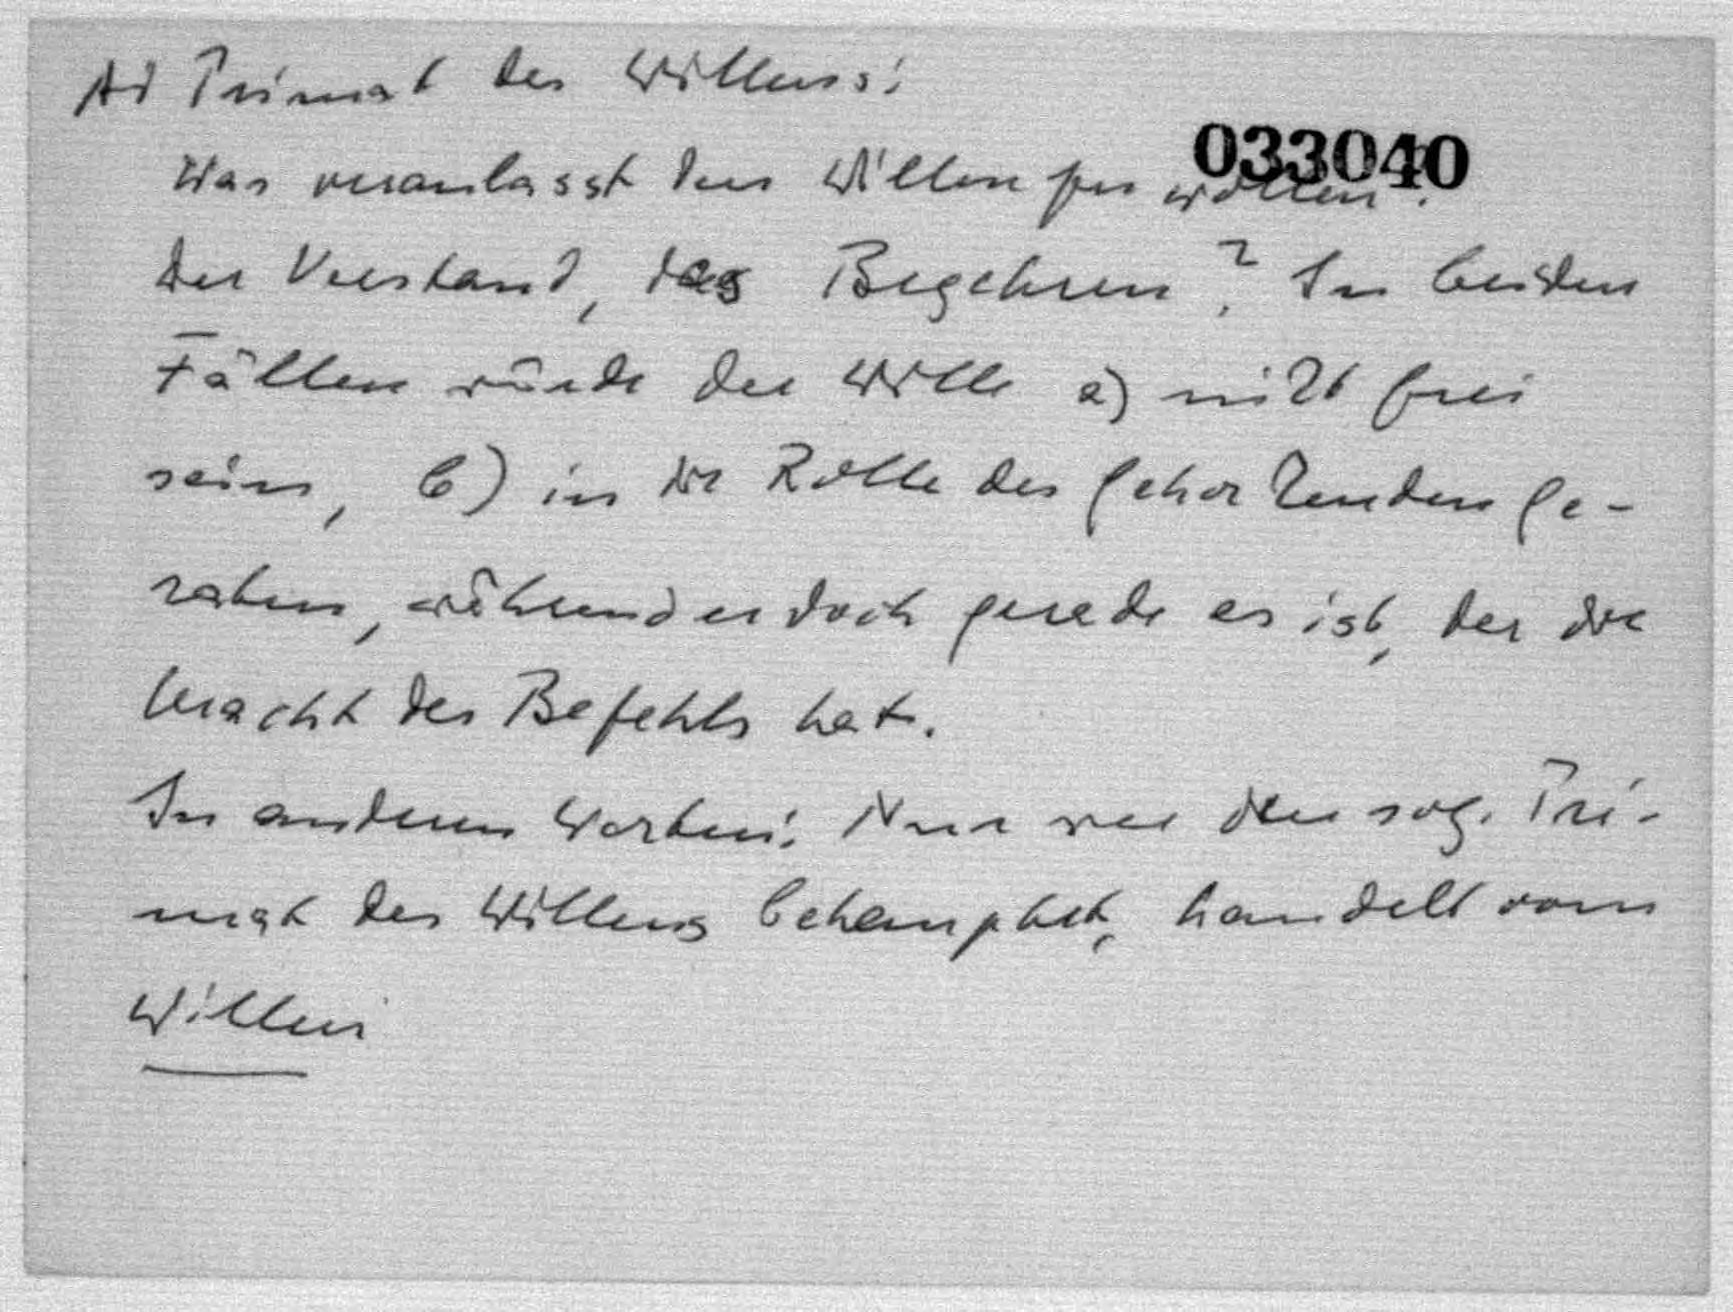 Ad Primat des Willens:
033040
Was veranlasst den Willen zu wollen?
Der Verstand, das Begehren? In beiden
Fällen würde der Wille a) nicht frei
sein, b) in die Rolle des Gehorchenden ge-
raten, während er doch gerade es ist, der die
Macht des Befehls hat.
In anderen Worten: Nur wer den sog. Pri-
mat des Willens behauptet, handelt vom
Willen